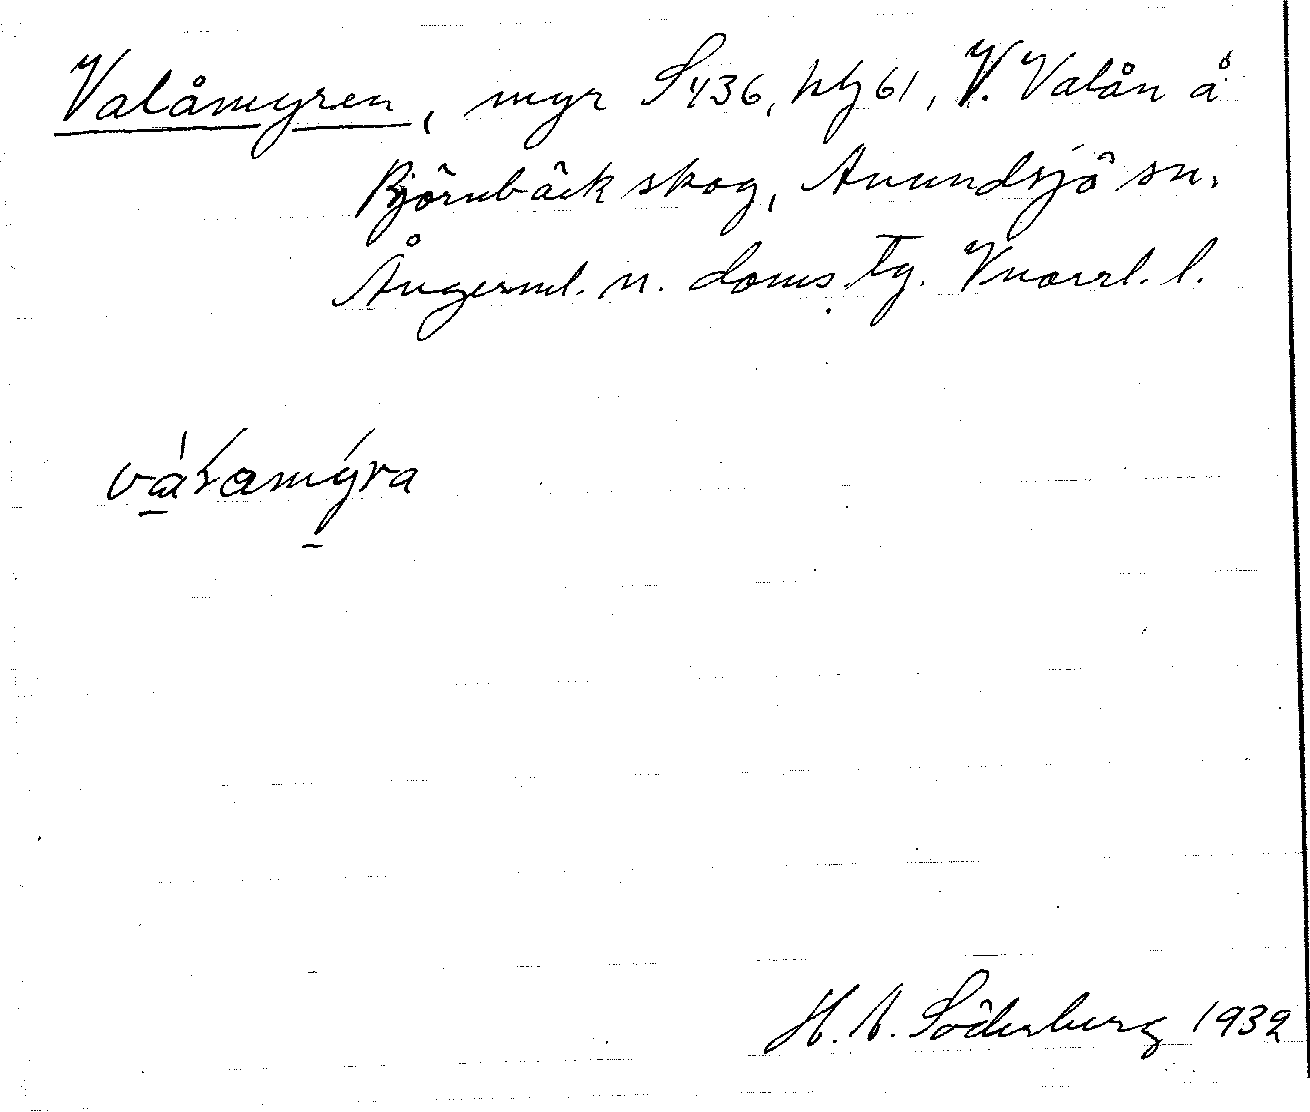 Valåmyren, myr S436, hbj 61, V. Valån å
Björnbäck skog, Anundsjö sn.
Ångerml. n. doms. tg. Vnorrl. l.
váłamýra
H. A. Söderberg 1932